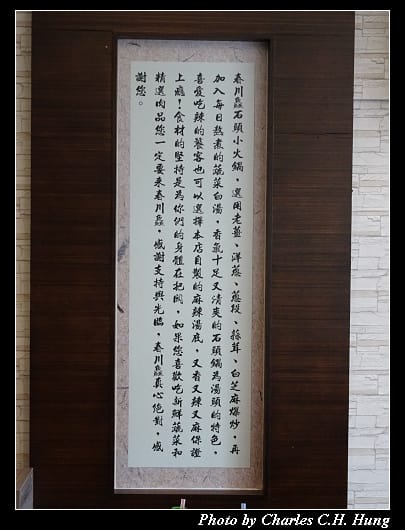 春川鱻石頭小火鍋，選用老薑、洋蔥、蔥段、蒜茸、白芝麻爆炒，再
加入每日熬煮的蔬菜白湯，香氣十足又清爽的石頭鍋為湯頭的特色，
喜愛吃辣的饕客也可以選擇本店自製的麻辣湯底，又香又辣又麻保證
上癮！食材的堅持是為你們的身體在把關，如果您喜歡吃新鮮蔬菜和
精選肉品您一定要來春川鱻，感謝支持與光臨，春川鱻真心絕對，感
謝您。
Photo by Charles C.H. Hung